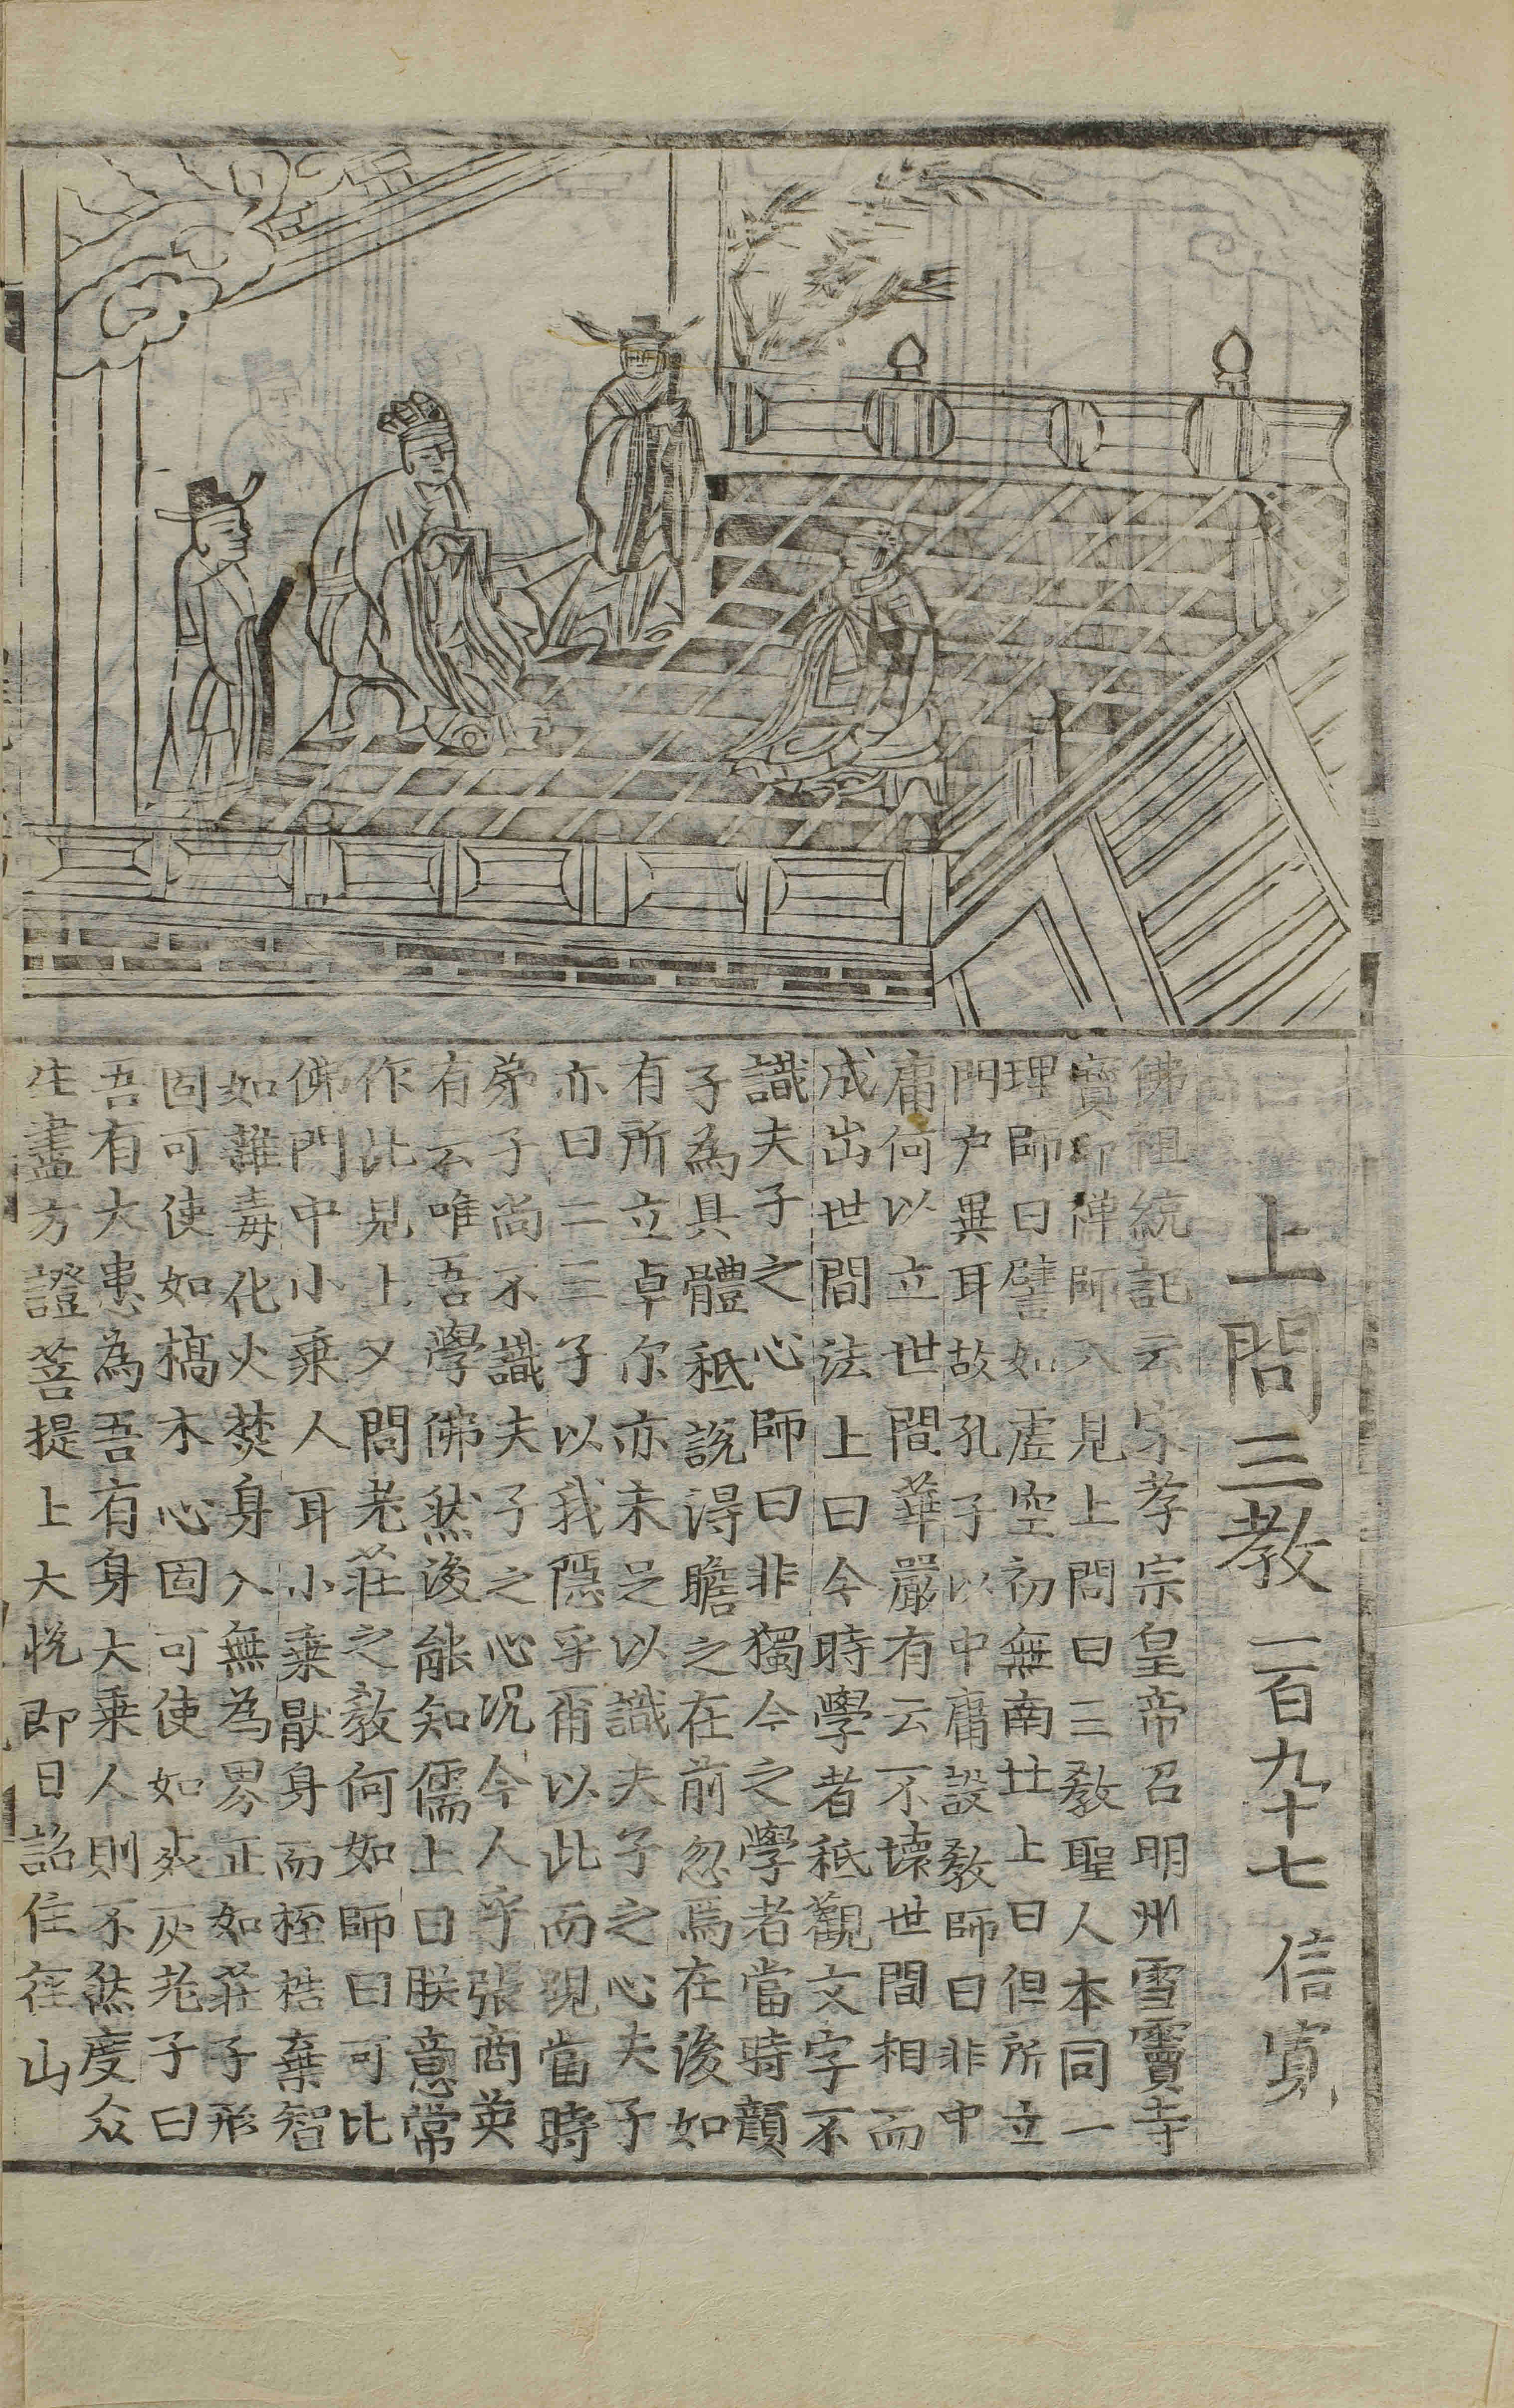 上問三教 一百九十七 信寘
佛祖統記云宋孝宗皇帝召明州雪竇寺
寶印禪師入見上問曰三教聖人本同一
理師曰譬如虛空初無南北上曰但所立
門户異耳故孔子以中庸設教師曰非中
庸何以立世間華嚴有云不壞世間相而
成出世間法上曰今時學者秪觀文字不
識夫子之心師曰非獨今之學者當時顔
子為具體秪說得瞻之在前忽焉在後如
有所立卓尔亦未足以識夫子之心夫子
亦曰二三子以我隱乎爾以此而現當時
弟子尚不識夫子之心况今人乎張商英
有云唯吾學佛然後能知儒上曰朕意常
作此見上又問老莊之教何如師曰可比
佛門中小乘人耳小乘猒身而桎梏棄智
如雜毒化火焚身入無為界正如莊子形
固可使如槁木心固可使如死灰老子曰
吾有大患為吾有身大乘人則不然度众
生盡方證菩提上大悦即日詔住徑山